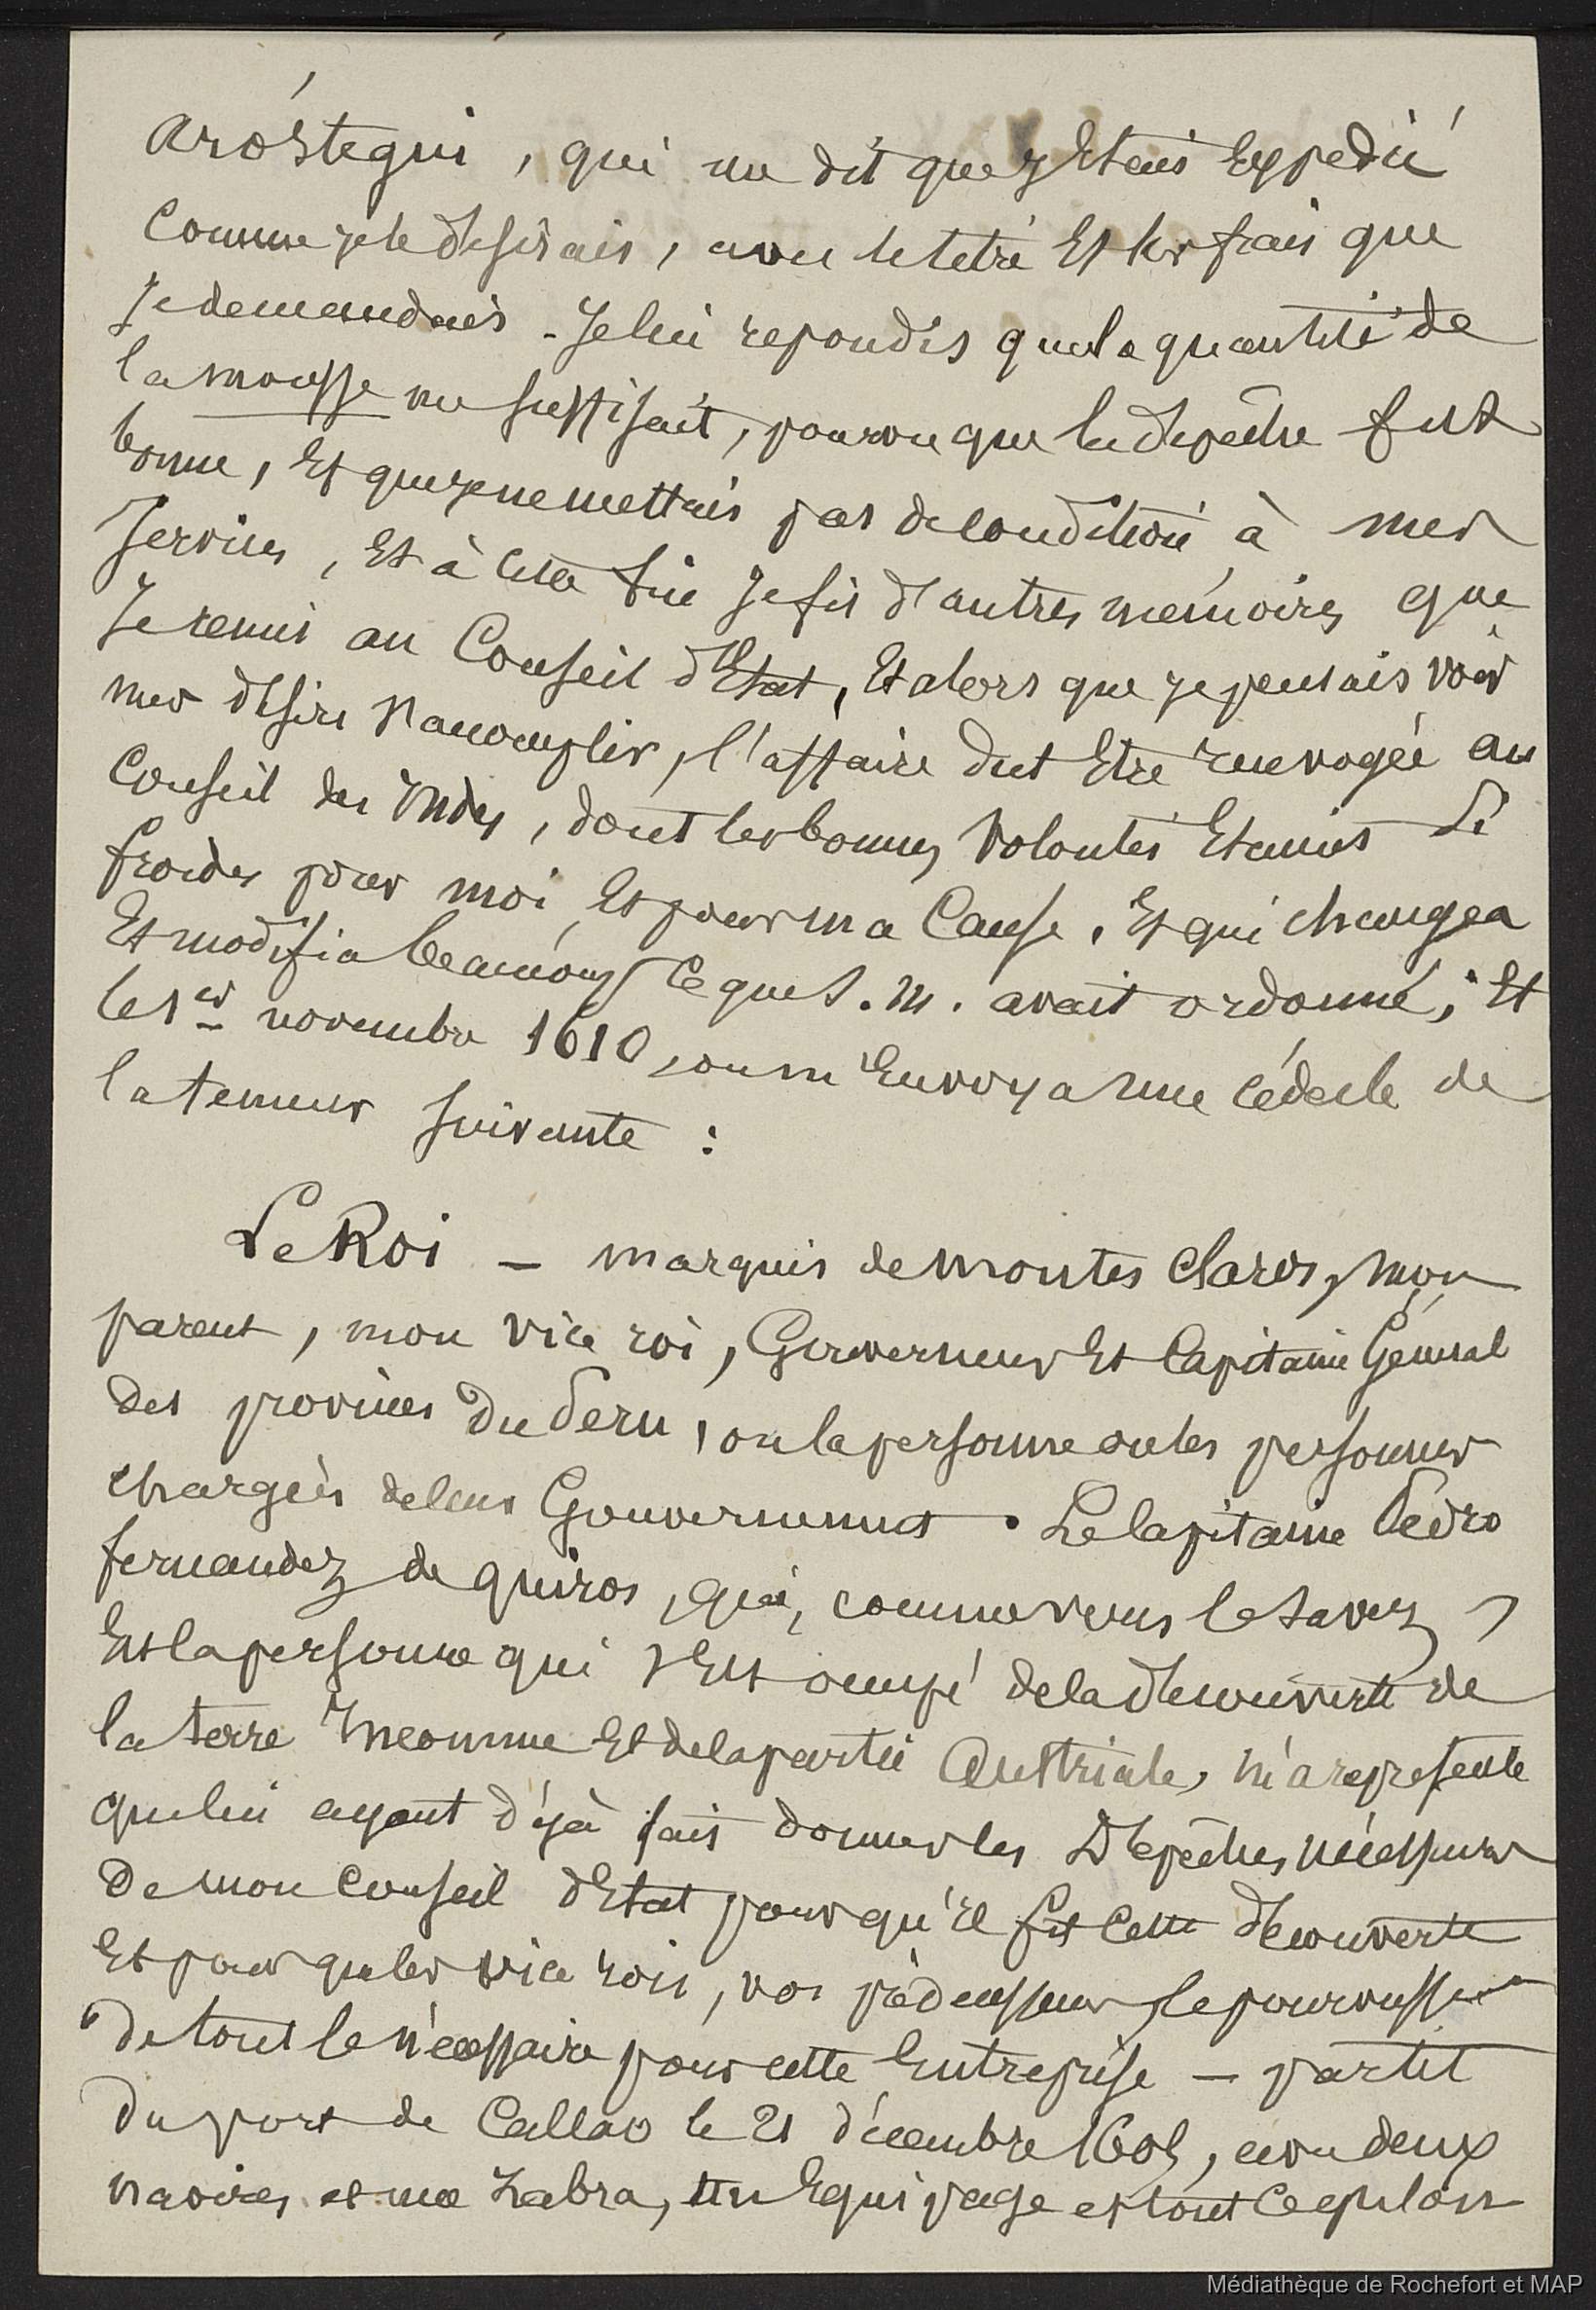 Aróstegui, qui me dit que j'étais expédié
comme je le désirais, avec le titre et les frais que
je demandais. Je lui répondis que la quantité de
la mousse me suffisait, pourvu que la dépêche fut
bonne, et que je ne mettais pas de condition à mes
services, et à cette fin je fis d'autres mémoires que
je remis au Conseil d'Etat, et alors que je pensais voir
mes désirs s'accomplir, l'affaire dut être renvoyée au
Conseil des Indes, dont les bonnes volontés étaient si
froides pour moi et pour ma cause, et qui changea
et modifia beaucoup ce que S. M. avait ordonné; et
le 1er novembre 1610, on m'envoya une cédule de
la teneur suivante :
Le Roi — marquis de montes claros, mon
parent, mon vice roi, Gouverneur et Capitaine Général
des provinces du Perú, ou la personne ou les personnes
chargées de leur Gouvernement. Le Capitaine Pedro
fernandez de quiros, qui, comme vous le savez,
est la personne qui s'est occupé de la découverte de
la terre Inconnue et de la partie Austriale, m'a représenté
que lui ayant déjà fait donner les Dépêches nécessaires
de mon conseil d'Etat pour qu'il fit cette découverte
et pour que les vice rois, vos prédecesseurs, le pourvussent
de tout le nécessaire pour cette entreprise — partit
du port de Callao le 21 décembre 1605, avec deux
navires et une zabra, un equipage et tout ce qu'on